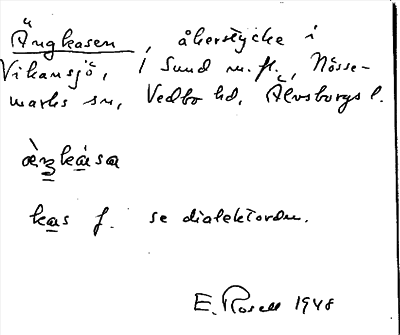 Ängkasen, åkerstycke i
Vikansjö, 1 Sund m. fl., Nösse-
marks sn, Vedbo hd, Älvsborgs l.
æŋkàsa
kas f. se dialektordn.
E. Rosell 1948